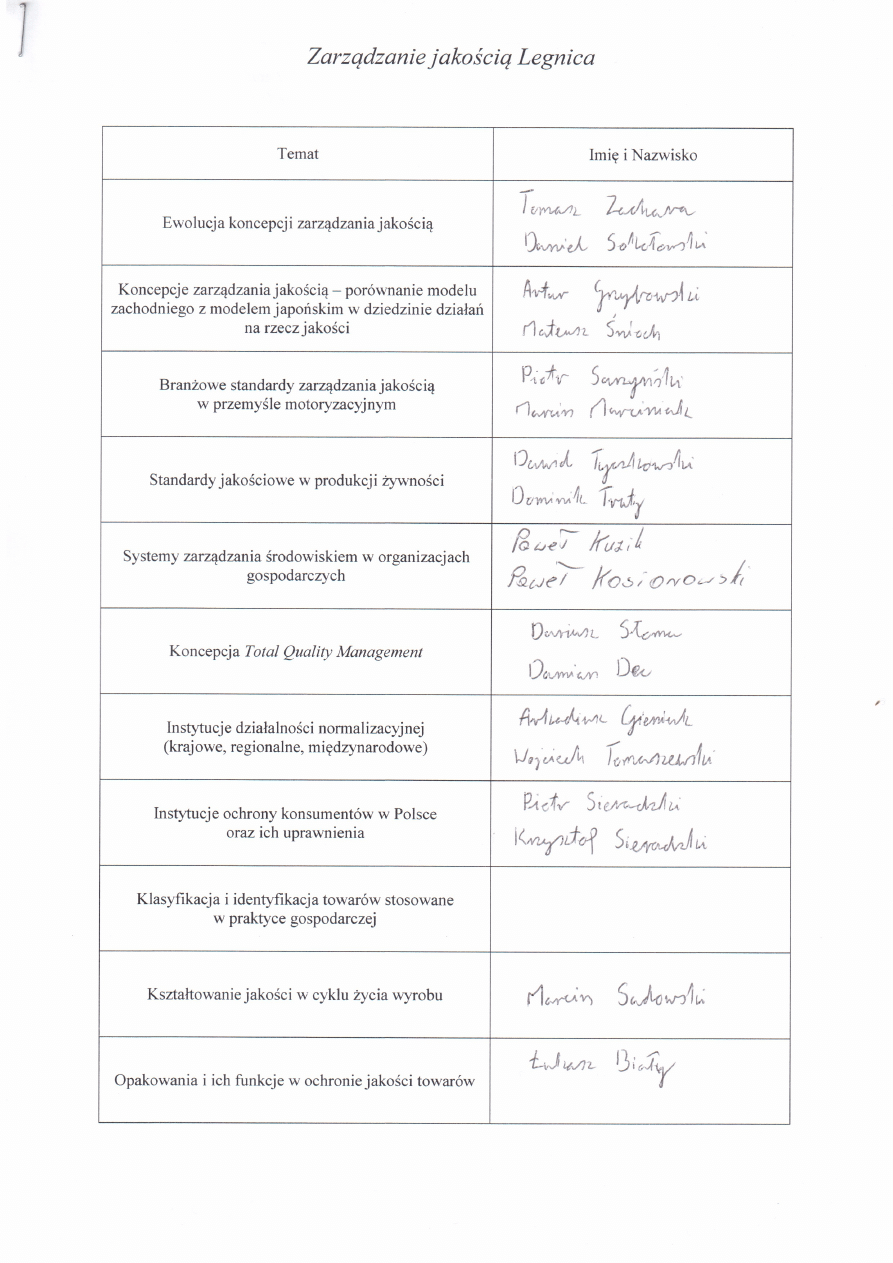 Zarządzanie jakością Legnica
Temat
Imię i Nazwisko
Ewolucja koncepcji zarządzania jakością
Tomasz Zachara
Daniel Sokołowski
Koncepcje zarządzania jakością – porównanie modelu
zachodniego z modelem japońskim w dziedzinie działań
na rzecz jakości
Artur Grzybowski
Mateusz Śnioch
Branżowe standardy zarządzania jakością
w przemyśle motoryzacyjnym
Piotr
Marcin Marciniak
Standardy jakościowe w produkcji żywności
Dawid Tyszkowski
Dominik Truty
Systemy zarządzania środowiskiem w organizacjach
gospodarczych
Paweł Kuzik
Paweł Kosionowski
Koncepcja Total Quality Management
Dariusz Słoma
Damian Dec
Instytucje działalności normalizacyjnej
(krajowe, regionalne, międzynarodowe)
Arkadiusz Gieniuk
Wojciech Tomaszewski
Instytucje ochrony konsumentów w Polsce
oraz ich uprawnienia
Piotr Sieradzki
Krzysztof Sieradzki
Klasyfikacja i identyfikacja towarów stosowane
w praktyce gospodarczej
Kształtowanie jakości w cyklu życia wyrobu
Marcin Sadowski
Opakowania i ich funkcje w ochronie jakości towarów
Łukasz Biały